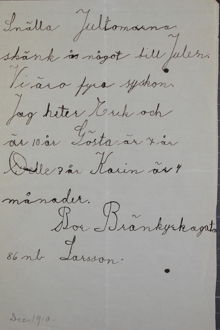 Snälla Jultomarna
skänk oss något till Julen.
Vi äro fyra syskon.
Jag heter Erik och
är 10 år Gösta är 7 år
Olle 3 år Karin är 4
månader.
Boe Bränkyrkagat.
86 nb Larsson.
Dec. 1910.